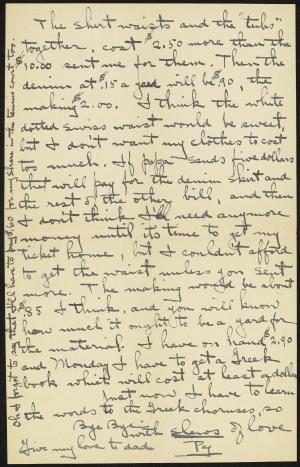 The shirt waists and the "tubs"
together, cost $2.50 more than the
$10.00 sent me for them. Then the
denim at $.15 a yard will be $.90, the
making $2.00. I think the white
dotted swiss waist would be sweet,
but I don't want my clothes to cost
too much. If papa sends five dollars
that will pay for the denim skirt and
the rest of the other bill, and then
I don't think I'll need anymore
money until its time to get my
ticket home, but I couldn't afford
to get the waist unless you sent
more. The making would be about
$.85 I think, and you will know
how much it ought to be a yard for
the material. I have on hand $2.90
and Monday I have to get a Greek
book which will cost at least a dollar.
Just now I have to learn
the words to the Greek choruses, so
Bye Bye
with of love
Peg
Give my love to dad
I forgot to say that I'll have to pay $.60 for my share in the tennis court, too.